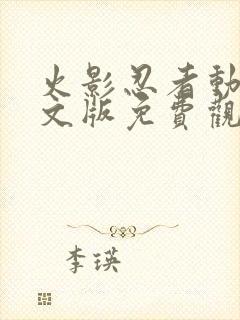 火影忍者動
文版免費觀
李瑛